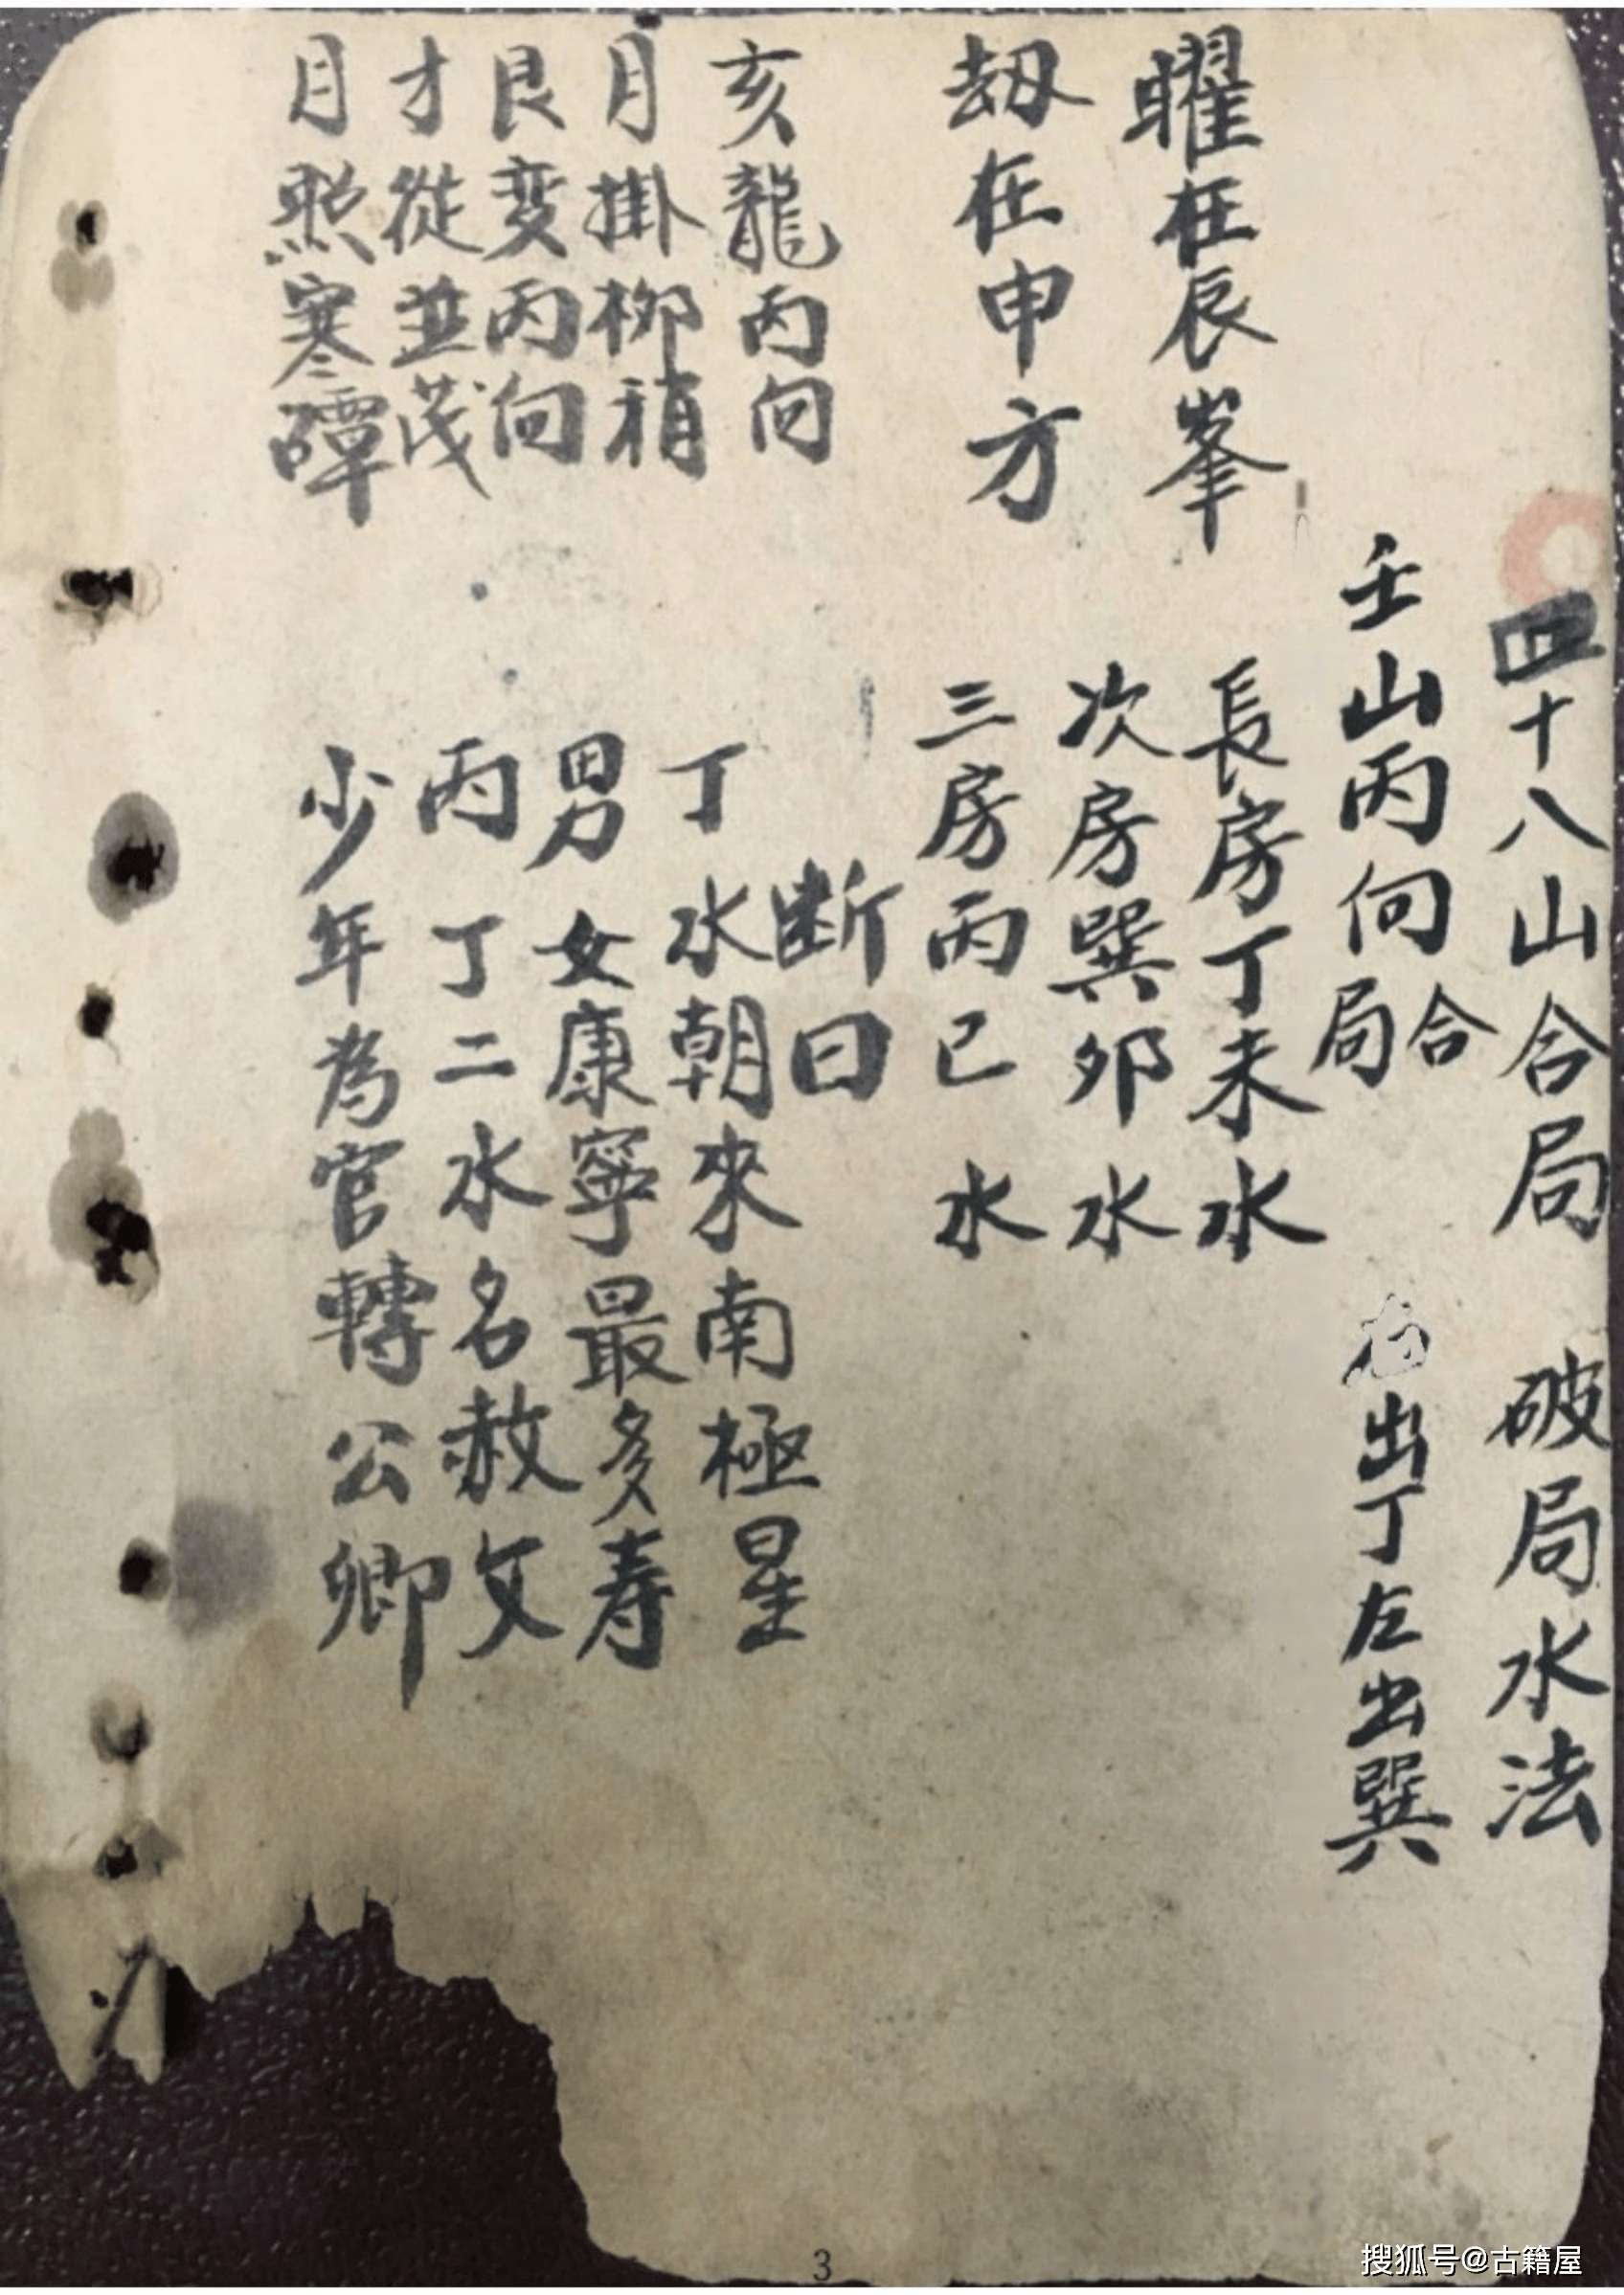 四十八山合局 破局水法
壬山丙向合局 出丁左出巽
曜在辰峯
長房丁未水
次房巽卯水
劫在申方
三房丙巳水
断曰
亥龍丙向
丁水朝來南極星
月掛柳稍
男女康寧最多寿
艮变丙向
丙丁二水名赦文
才從並茂
少年為官轉公卿
月照寒磹
3
搜狐号@古籍屋